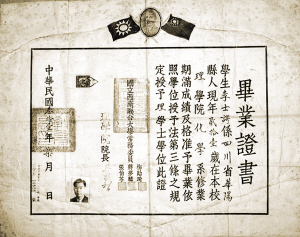 畢業證書
學生李士諤係四川省華陽
縣人現年貳拾壹歲在本校
理學院化學系修業
期滿成績及格准予畢業依
照學位授予法第三條之規
定授予理學士學位此證
國立西南聯合大學常務委員
梅貽琦
蔣夢麟
張伯苓
院長
中華民國
年柒月
日